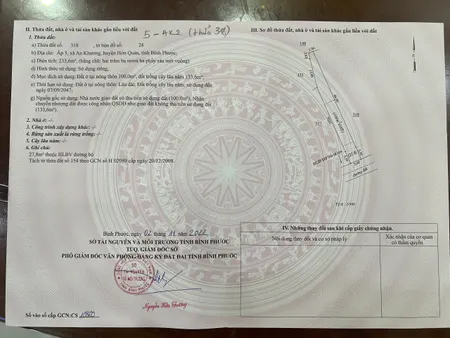 II. Thửa đất, nhà ở và tài sản khác gắn liền với đất
5-AK2 (thửa 318)
1. Thửa đất:
a) Thửa đất số: 318 , tờ bản đồ số: 28
b) Địa chỉ: Ấp 5, xã An Khương, huyện Hớn Quản, tỉnh Bình Phước.
c) Diện tích: 233,6m², (bằng chữ: hai trăm ba mươi ba phẩy sáu mét vuông)
d) Hình thức sử dụng: Sử dụng riêng,
đ) Mục đích sử dụng: Đất ở tại nông thôn 100,0m²; đất trồng cây lâu năm 133,6m²,
e) Thời hạn sử dụng: Đất ở tại nông thôn: Lâu dài; Đất trồng cây lâu năm, sử dụng đến ngày 07/09/2047.
g) Nguồn gốc sử dụng: Nhà nước giao đất có thu tiền sử dụng đất (100,0m²), Nhận chuyển nhượng đất được công nhận QSDĐ như giao đất không thu tiền sử dụng đất (133,6m²).
2. Nhà ở: -/-
3. Công trình xây dựng khác: -/-
4. Rừng sản xuất là rừng trồng: -/-
5. Cây lâu năm: -/-
6. Ghi chú:
27,8m² thuộc HLBV đường bộ
Tách từ thửa đất số 154 theo GCN số H 02980 cấp ngày 20/02/2008.
Bình Phước, ngày 02 tháng 11 năm 2022
SỞ TÀI NGUYÊN VÀ MÔI TRƯỜNG TỈNH BÌNH PHƯỚC
TUQ. GIÁM ĐỐC SỞ
PHÓ GIÁM ĐỐC VĂN PHÒNG ĐĂNG KÝ ĐẤT ĐAI TỈNH BÌNH PHƯỚC
Số vào sổ cấp GCN:CS
III. Sơ đồ thửa đất, nhà ở và tài sản khác gắn liền với đất
IV. Những thay đổi sau khi cấp giấy chứng nhận
Nội dung thay đổi và cơ sở pháp lý
Xác nhận của cơ quan có thẩm quyền